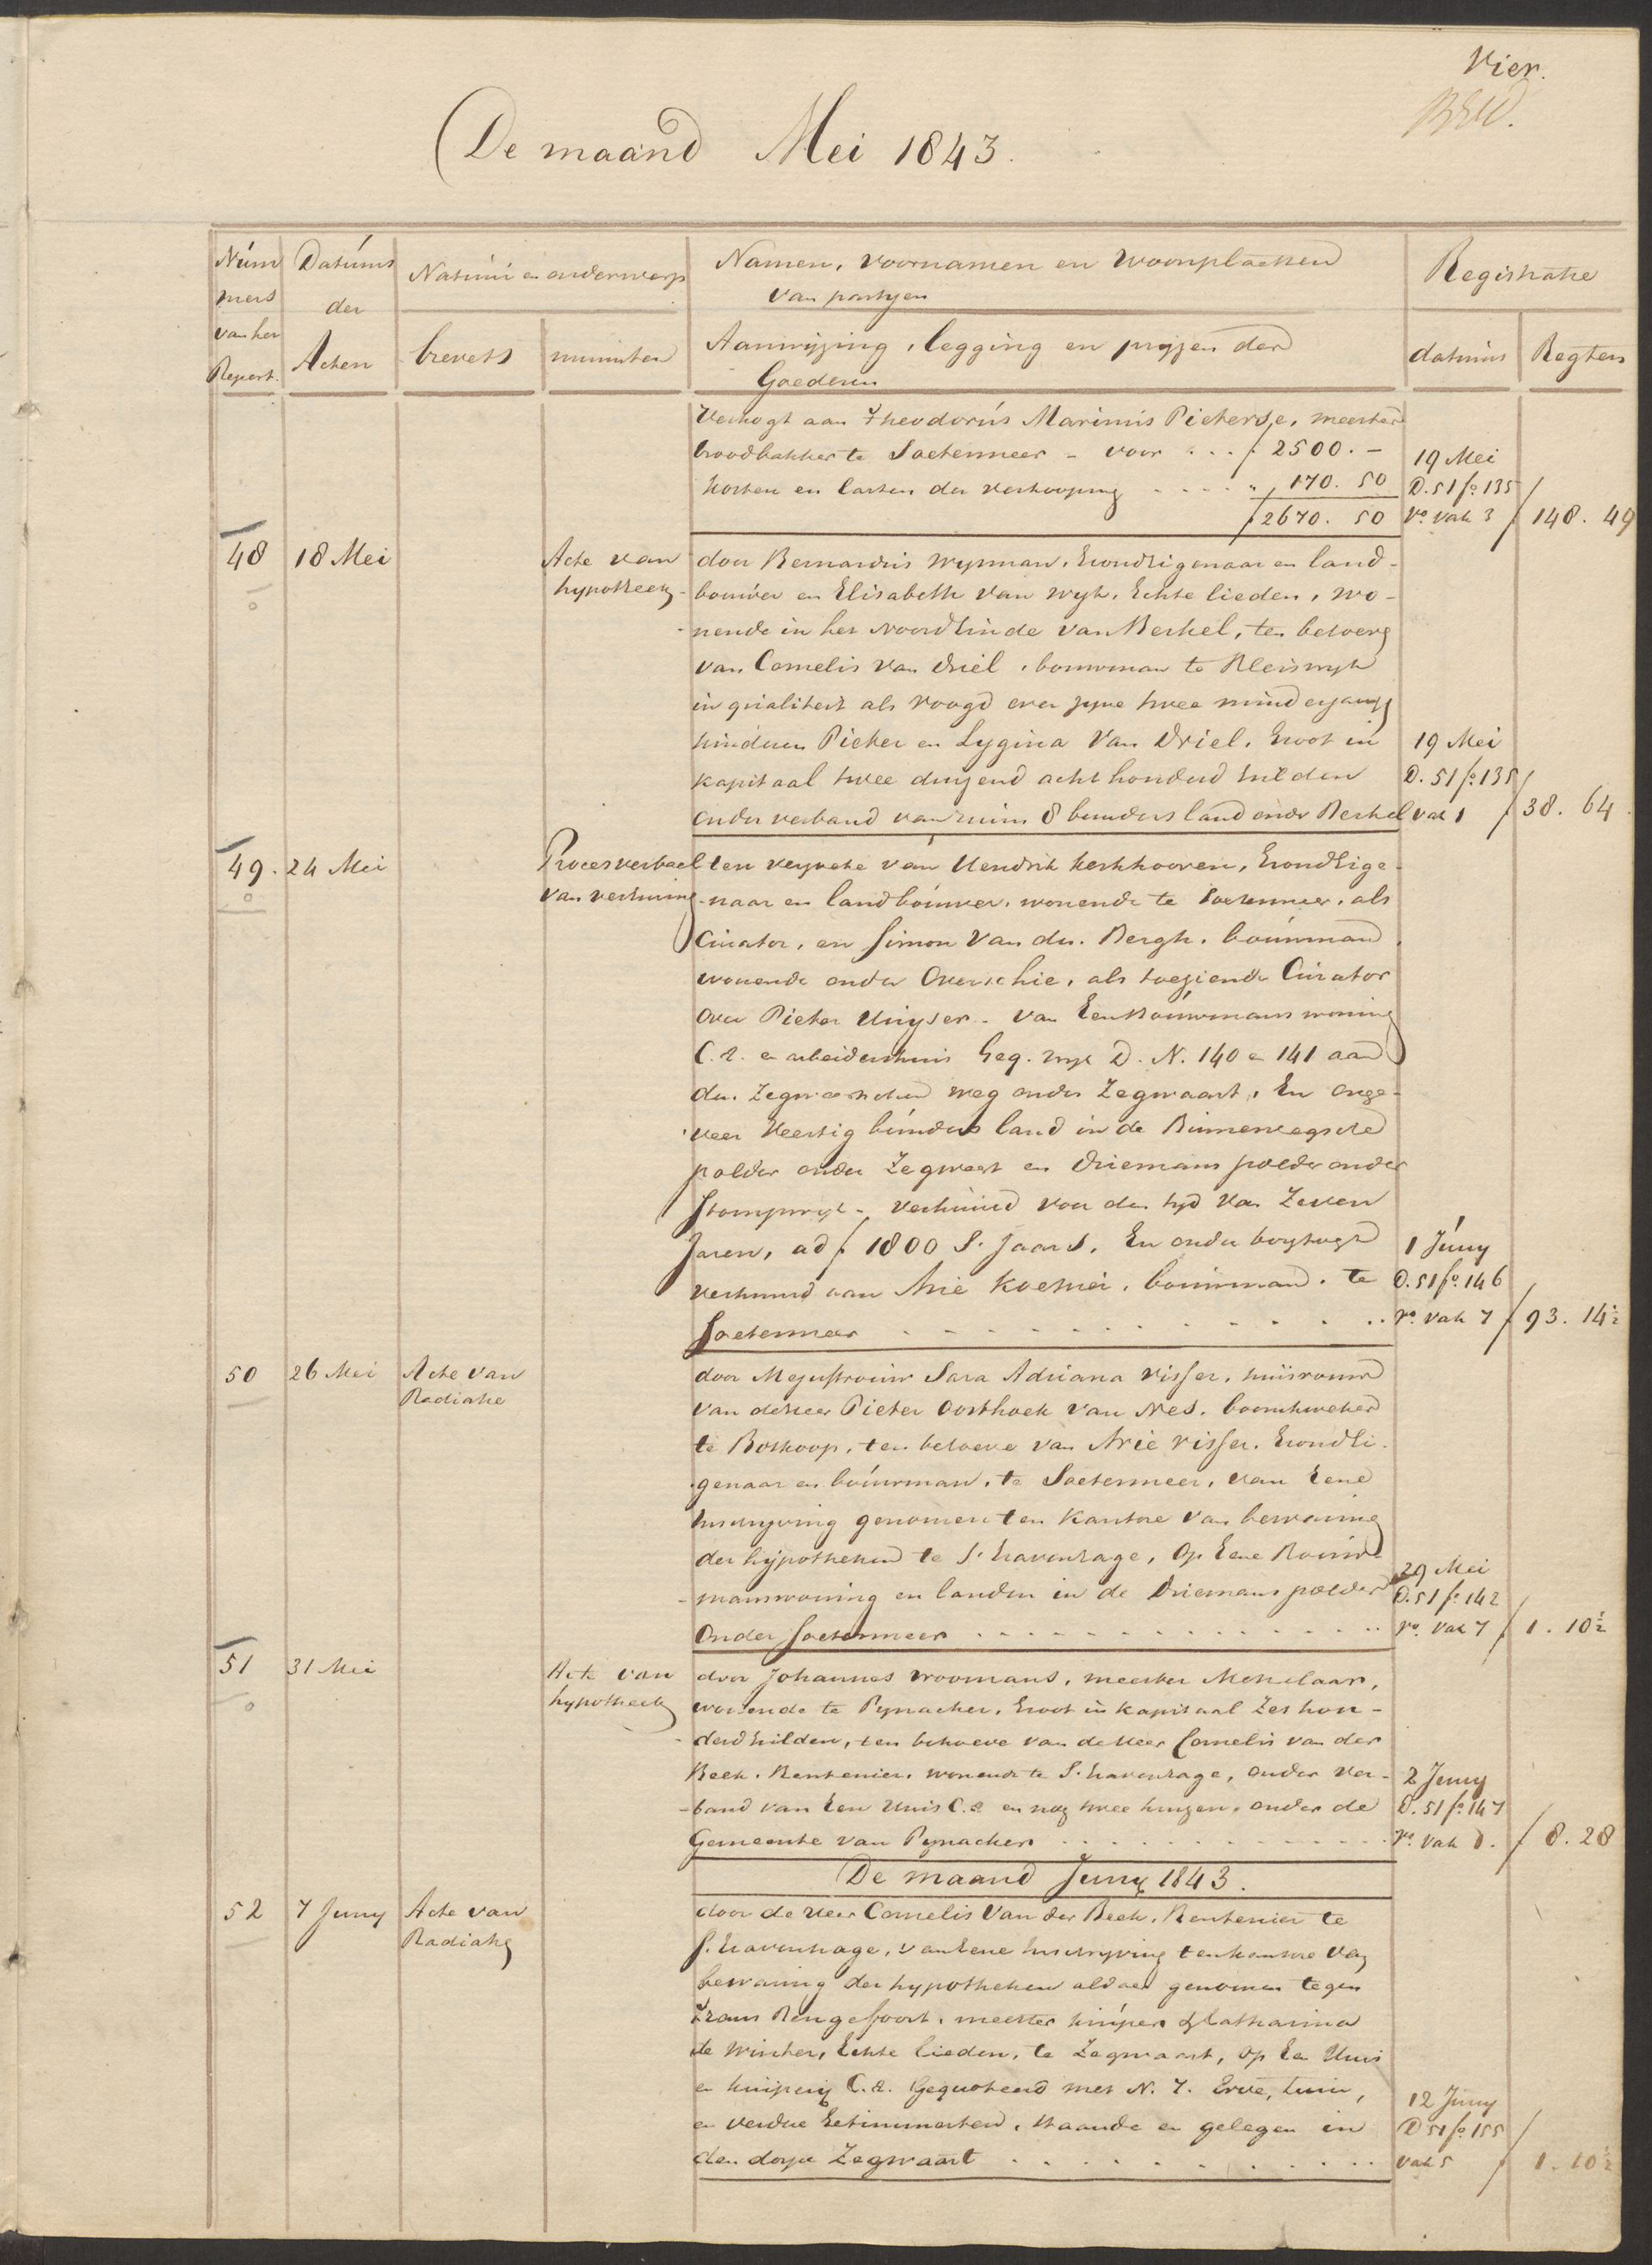 Vier.
De maand Mei 1843.
Núm
mers
van het
Repert.
Datúms
der
Acten
Natuur en onderwerp
brevets
minuten
Namen, voornamen en woonplaatsen
van partyen
Aanwyzing, legging en pryzen der
Goederen
Registratie
datums
Regten
Verkogt aan Theodorús Marinus Pieterse, meester
broodbakker te Soetermeer - voor . . . f 2500. -
kosten en lasten der verkooping . . . . " 170. 50
f 2670. 50
19 Mei
D. 51 fo. 135
vo. vak 3
f 148. 49
48
18 Mei
Acte van
hypotheek
door Bernardus Wynman, Grondeigenaar en land-
bouwer en Elisabeth van Wyk, Echte lieden, wo-
nende in het Noordeinde van Berkel, ten behoeve
van Cornelis van Driel, bouwman te Bleiswyk
in qualiteit als voogd over zyne twee minderjarige
kinderen Pieter en Lygina Van Driel, Groot in
kapitaal twee duizend acht honderd Gulden
onder verband van ruim 8 bunders land onder Berkel
19 Mei
D. 51 fo. 135
vak 1
f 38. 64
49.
24 Mei
Procesverbaal
van verhuring
ten verzoeke van Hendrik Kerkhooven, Grondeige-
naar en landbouwer, wonende te Soetermeer, als
Curator, en Simon Van den Bergh, bouwman
wonende onder Overschie, als toeziende Curator
over Pieter Huyser - van Een Bouwmans woning
C.A. en arbeidershuis Geq. wyk D. N. 140 en 141 aan
den Zegwaartschen weg onder Zegwaart, En onge-
veer Veertig bunders land in de Binnenwegsche
polder onder Zegwaart en Driemans polder onder
Stompwyk - verhuurd voor den tyd van Zeven
Jaren, ad f 1800 S. Jaars, En onder borgtogt
verhuurd aan Arie Koemei, bouwman, te
Soetermeer . . . . . . . . . . .
1 Júny
D. 51 fo. 146
ro. vak 7
f 93. 14½
50
26 Mei
Acte van
Radiatie
door Mejuffrouw Sara Adriana Visser, huisvrouw
van de Heer Pieter Oosthoek van Nes, boomkweker
te Boskoop, ten behoeve van Arie Visser, Grondei-
genaar en bouwman, te Soetermeer, van Eene
Inschryving genomen ten Kantore van bewaring
der hypotheken te S. Gravenhage, Op Eene Bouw-
manswoning en landen in de Driemans polder
Onder Soetermeer . . . . . . . . . . . . . . .
29 Mei
D. 51 fo. 142
ro. vak 7
f 1. 10½
51
31 Mei
Acte van
hypotheek
door Johannes Vroomans, meester Metselaar,
wonende te Pynacker, Groot in kapitaal Zes hon-
derd Gulden, ten behoeve van de Heer Cornelis van der
Beek, Rentenier, wonende te S. Gravenhage, onder ver-
band van Een Huis C.A. en nog twee huizen, onder de
Gemeente van Pynacker . . . . . . . . . . . . .
2 Juny
D. 51 fo. 147
ro. vak 8.
f 8. 28
De maand Juny 1843.
52
7 Juny
Acte van
Radiatie
door de Heer Cornelis Van der Beek, Rentenier te
S. Gravenhage, van Eene Inschryving ten kantore van
bewaring der hypotheken aldaar genomen tegen
Frans Rengefoort, meester kuiper & Catharina
de Winter, Echte lieden, te Zegwaart, op Een Huis
en kuipery C.A. Gequoteerd met N. 7. Erve, tuin,
en verdere Getimmerten, staande en gelegen in
den dorpe Zegwaart . . . . . . . . . . .
12 Juny
D 51 fo. 155
vak 5
f 1. 10½